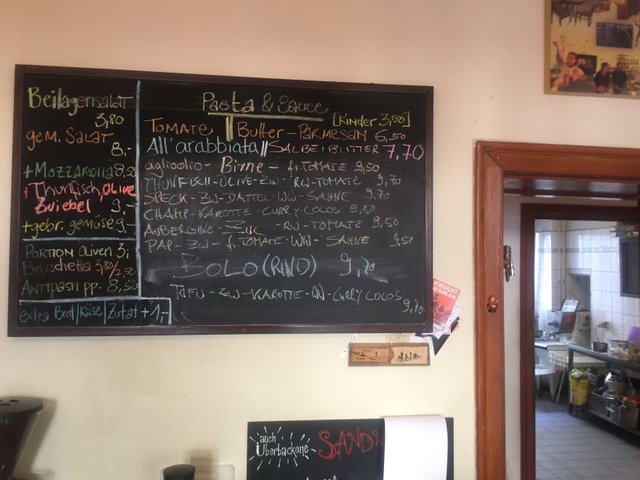 Beilagensalat
3,80
gem. Salat
8.-
+ Mozzarella 8,50
+ Thunfisch, Olive
Zwiebel 9,-
+ gebr. gemüse 9,-
Portion Oliven 3,-
Bruschetta
Antipasti pp. 8,50
extra Brot/Käse/Zutat +1,-
Pasta & Sauce
[Kinder 3,50]
Tomate || Butter-Parmesan 6,50
All'arabbiata || Salbeibutter 7,70
aglioolio - Birne - f. Tomate 9,50
Thunfisch-Olive-Zw - RW-Tomate 9,70
Speck - Zw - Dattel - WW - Sahne 9,70
Champ - Karotte - Curry Cocos 9,50
Aubergine - Zuc - RW - Tomate 9,50
Pap - Zw - f. Tomate - WW - Sahne 9,50
Bolo (Rind) 9,70
Tofu - Zw - Karotte - Curry Cocos
9,70
auch
Überbackene
SAND